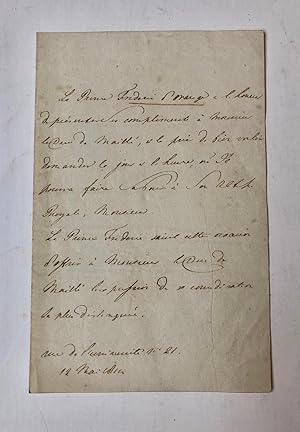 Le Prince Frédéric d'Orange a l'honneur
de présenter ses compliments à monsieur
le Duc de Maillé, et le prie de bien vouloir
demander le jour et l'heure, où Il
pourra faire sa cour à Son Alt.
Royale, Monsieur.
Le Prince Frédéric saisit cette occasion
d'offrir à Monsieur le Duc de
Maillé les assurances de sa considération
la plus distinguée.
rue de l'université N° 21.
12 Mai